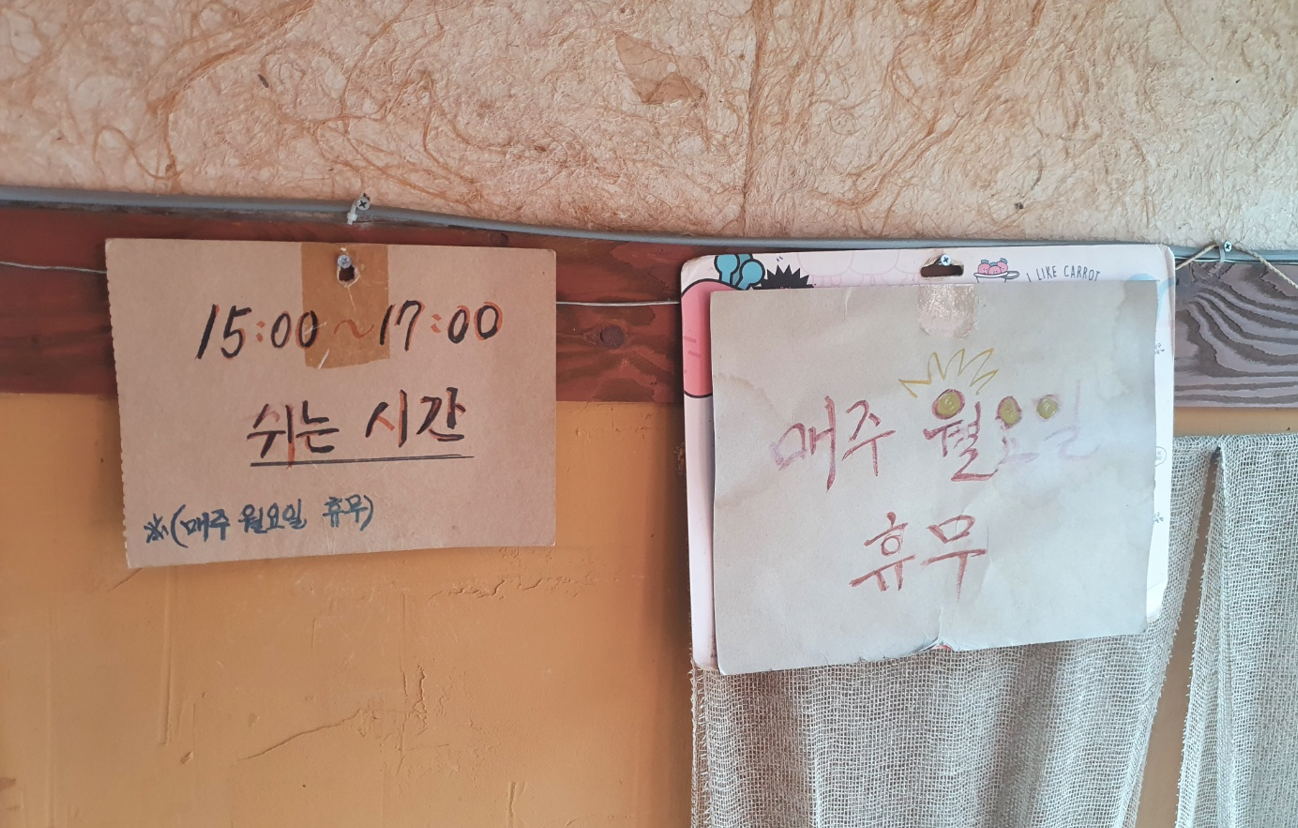 15:00 ~ 17:00
쉬는 시간
※(매주 월요일 휴무)
I LIKE CARROT
매주 월요일
휴무